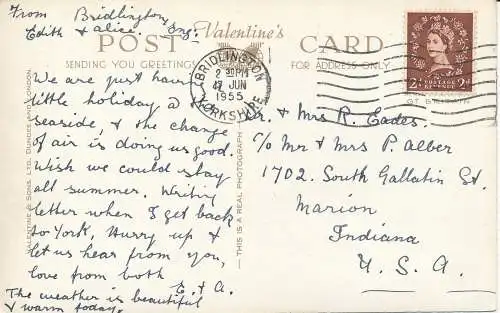 From Bridlington, Eng.
Edith & Alice.
Valentine's
POST CARD
SENDING YOU GREETINGS
FOR ADDRESS ONLY
BRIDLINGTON
2 30 PM
JUN
1955
YORKSHIRE
2d POSTAGE REVENUE 2d
GT BRITAIN
We are just having
little holiday @ the
seaside, & the change
of air is doing us good.
Wish we could stay
all summer. Writing
letter when I get back
to York, Hurry up &
let us hear from you,
love from both
E & A.
The weather is beautiful
& warm today.
VALENTINE & SONS. LTD. DUNDEE AND LONDON.
— THIS IS A REAL PHOTOGRAPH —
Mr & Mrs R. Eades.
c/o Mr & Mrs P. Alber
1702. South Gallatin St.
Marion
Indiana
U. S. A.